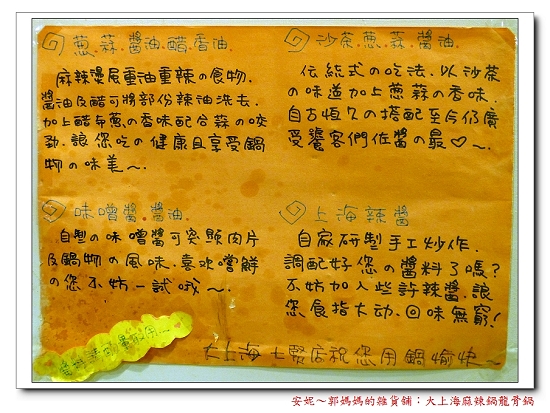 蔥.蒜.醬油.醋.香油.
麻辣燙屬重油重辣的食物.
醬油及醋可將部份辣油洗去.
加上醋與蔥的香味配合蒜的咬
勁.讓您吃的健康且享受鍋
物的味美～.
沙茶.蔥.蒜.醬油
傳統式的吃法.以沙茶
的味道加上蔥蒜の香味.
自古恆久の搭配至今仍廣
受饕客們佐醬の最♡～.
味噌醬.醬油.
自製の味噌醬可突顯肉片
及鍋物の風味.喜歡嚐鮮
の您不妨一試哦～.
上海辣醬
自家研製手工炒作.
調配好您の醬料了嗎?
不妨加入些許辣醬.讓
您食指大动.回味無窮!
大上海七賢店祝您用鍋愉快～
安妮～郭媽媽的雜貨鋪：大上海麻辣鍋龍骨鍋